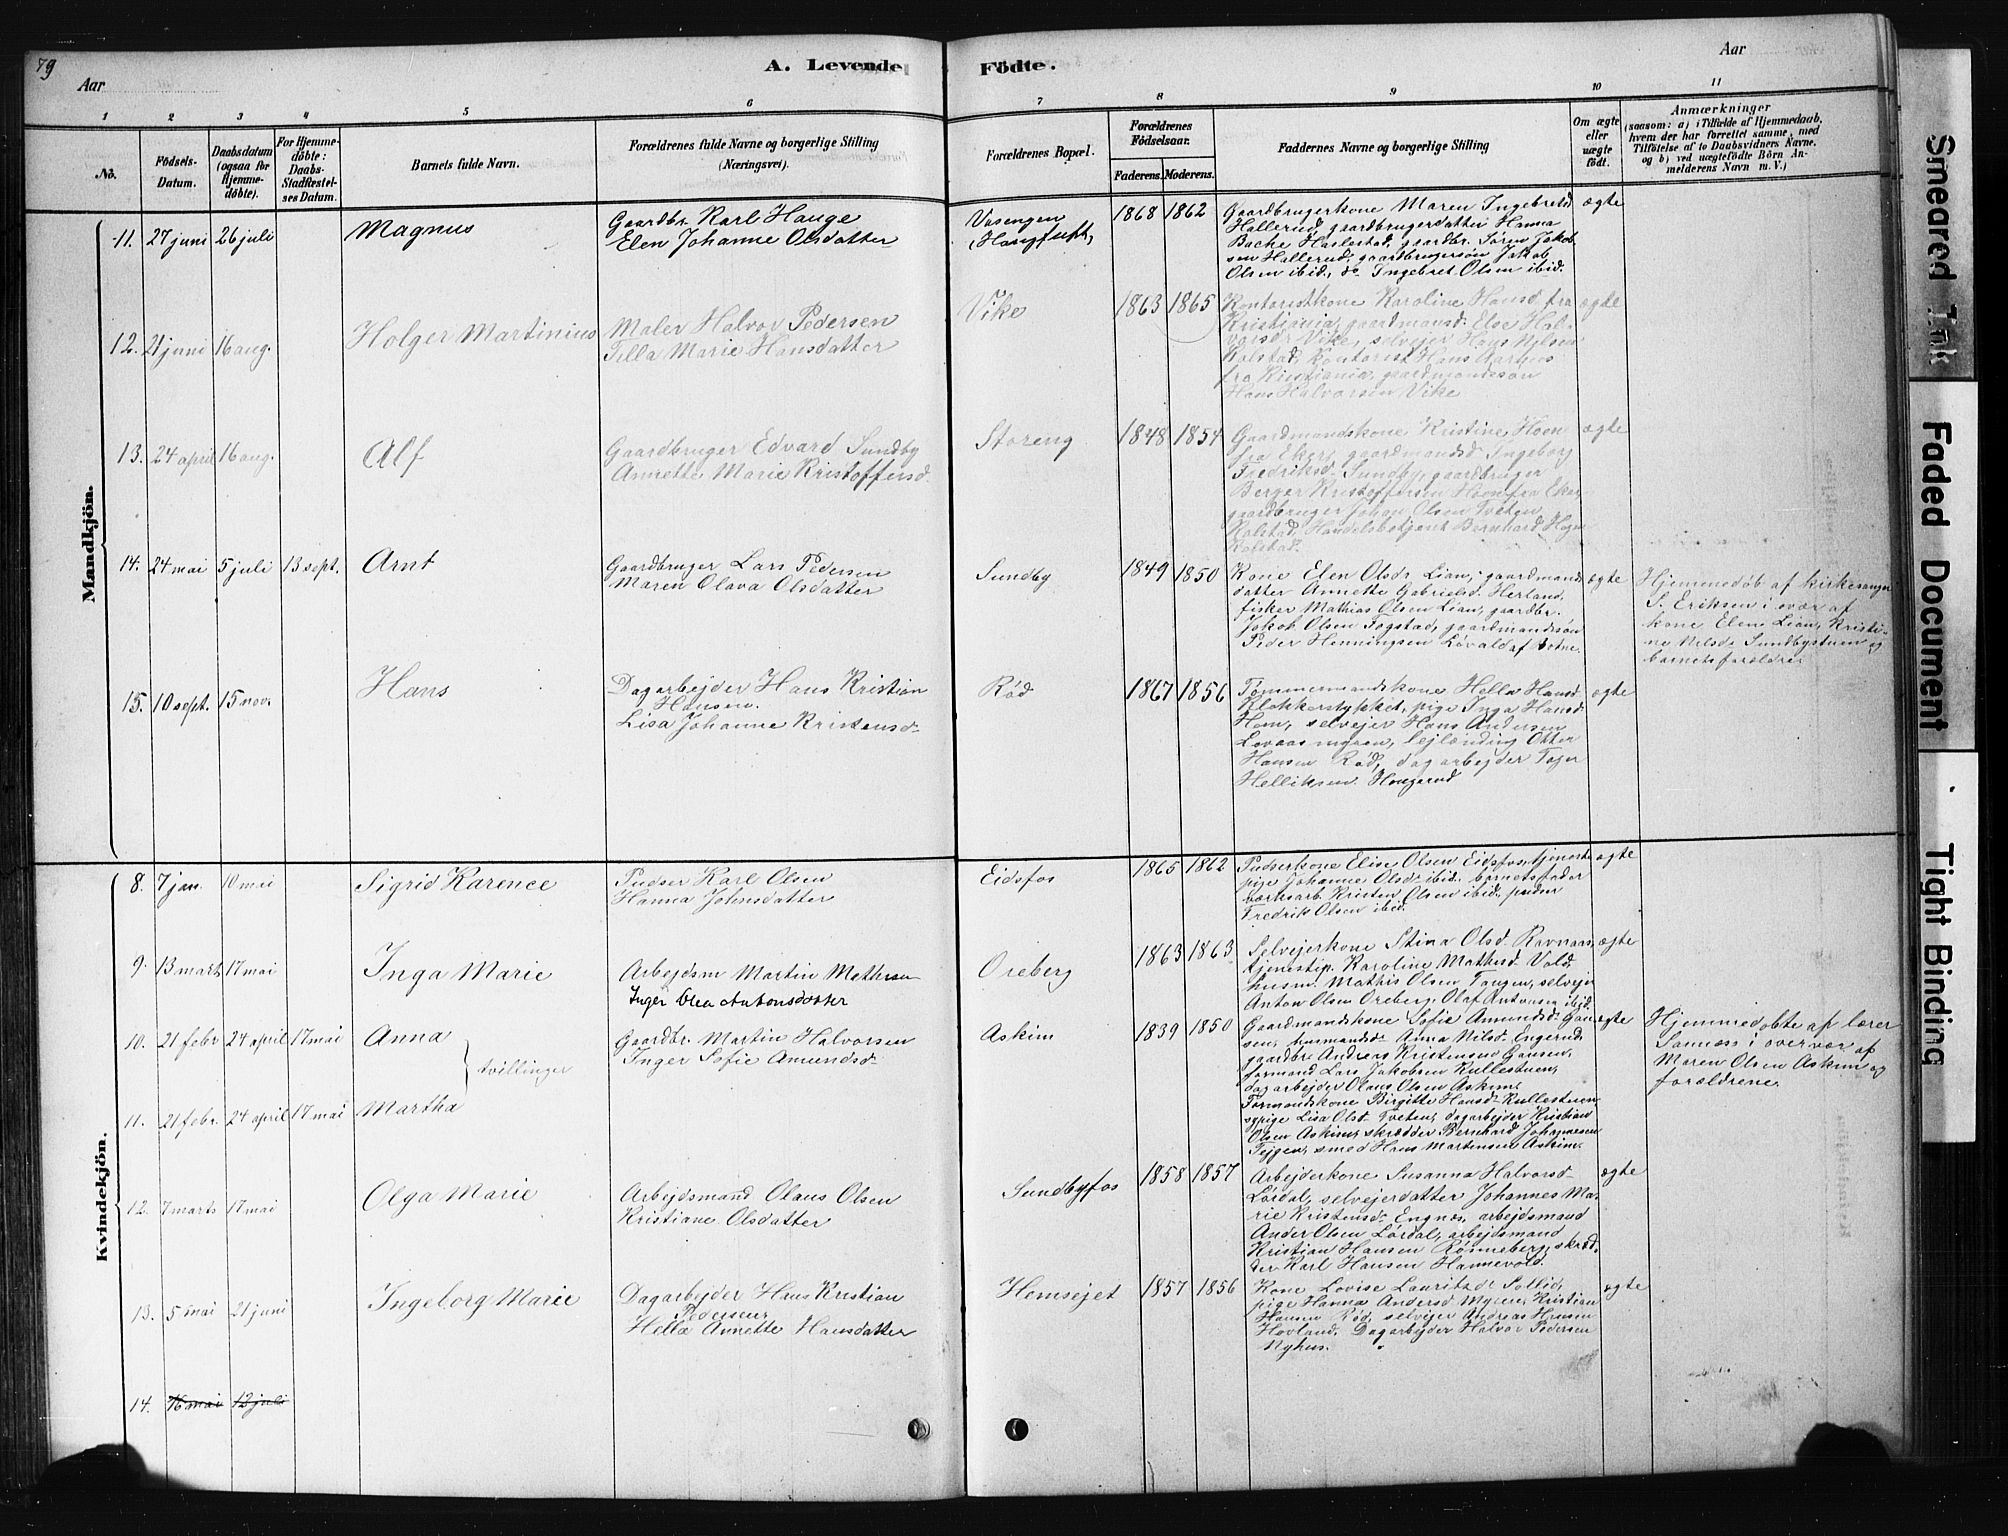 79
A. Levende Födte.
Aar
Aar
1 2 3 4 5 6 7 8 9 10 11
No.
Födsels-Datum.
Daabsdatum (ogsaa for Hjemme-döbte).
For Hjemme-döbte: Daabs-Stadfæstel-ses Datum.
Barnets fulde Navn.
Forældrenes fulde Navne og borgerlige Stilling (Næringsvei).
Forældrenes Bopæl.
Forældrenes Födselsaar.
Faderens. Moderens.
Faddernes Navne og borgerlige Stilling
Om ægte eller uægte födt.
Anmærkninger
(saasom: a) i Tilfælde af Hjemmedaab,
hvem der har forrettet samme, med
Tilföielse af to Daabsvidners Navne.
og b) ved uægtefödte Börn An-
melderens Navn m. V.)
Mandkjön.
11. 27 juni 26 juli Magnus
Gaardbr. Karl Hauge
Elen Johanne Olsdatter
Vasengen
1868 1862
Gaardbrugerkone Maren Ingebretsd
Hallerud, gaardbrugerdatter Hanna
Bache Haslestad, gaardbr. Søren Jakob
sen Hallerud, gaardbrugersøn Jakob
Olsen ibid, do Ingebret Olsen ibid.
ægte
12. 21 juni 16 aug. Holger Martinius
Maler Halvor Pedersen
Tilla Marie Hansdatter
Vike
1863 1865
Kontoristkone Karoline Hansd fra
Kristiania, gaardmansd. Else Hal-
vorsdr Vike, selvejer Hans Nilsen
Kolstad, Kontorist Hans Aarnes
fra Kristiania, gaardmandssøn
Hans Halvorsen Vike
ægte
13. 24 april 16 aug. Alf
Gaardbruger Edvard Sundby
Annette Marie Kristoffersd.
Storeng
1848 1854
Gaardmandskone Kristine Hoen
fra Eker, gaardmandsd. Ingeborg
Fredriksd. Sundby, gaardbruger
Berger Kristoffersen Hoen fra Eker
gaardbruger Johan Olsen Tveten
Kolstad, Handelsbetjent Bernhard
Kolstad.
ægte
14. 24 mai 5 juli 13 sept. Arnt
Gaardbruger Lars Pedersen
Maren Olava Olsdatter
Sundby
1849 1850
Kone Elen Olsdr Lian, gaardmands
datter Annette Gabrielsd. Herland
fisker Mathias Olsen Lian, gaardbr.
Jakob Olsen Fogstad, gaardmandssøn
Peder Henningsen Løvald af Botne.
ægte
Hjemmedøb af kirkesanger
S. Eriksen i overvær af
kone Elen Lian, Kristi-
ne Nilsd. Sundbystuen og
barnets forældre.
15. 10 sept. 15 nov. Hans
Dagarbejder Hans Kristian
Hansen.
Lisa Johanne Kristensd.
Rød
1867 1856
Tømmermandskone Hella Hansd
Klokkerstykket, pige Inga Hansd.
Hem, selvejer Hans Andersen
Lovaasmyren, lejlænding Otter
Hansen Rød, dagarbejder Toger
Helliksen Haugerud
ægte
Kvindekjön.
8. 7 jan. 10 mai Sigrid Karence
Pudser Karl Olsen
Hanna Johnsdatter
Eidsfos
1865 1862
Pudserkone Elise Olsen Eidsfos, tjeneste
pige Johanne Olsdr ibid. barnets fader
værksarb. Kristen Olsen ibid. pudser
Fredrik Olsen ibid.
ægte
9. 13 marts 17 mai Inga Marie
Arbejdsm Martin Mathisen
Inger Olea Antonsdatter
Oreberg
1863 1863
Selvejerkone Stina Olsd. Ravnaas,
tjenestep. Karoline Mathisd. Vold
husm. Mathis Olsen Tangen, selvejer
Anton Olsen Oreberg, Olaf Antonsen ibid.
ægte
10. 21 febr 24 april 17 mai Anna
tvillinger
Gaardbr. Martin Halvorsen
Inger Sofie Amundsd.
Askim
1839 1850
Gaardmandskone Sofie Amundsd. Gau
sen, husmandsd. Anna Nilsd. Engerud
gaardbr. Andreas Kristensen Gausen,
formand Lars Jakobsen Kullestuen,
dagarbejder Olaus Olsen Askim.
ægte
Hjemmedøbte af lærer
Sannæs i overvær af
Maren Olsen Askim og
forældrene.
11. 21 febr. 24 april 17 mai Martha
Formandskone Birgitte Hansdr Kullestuen
sypige Lisa Olsd. Tveten, dagarbejder Kristian
Olsen Askim, skrædder Bernhard Johannesen
Tejgen, smed Hans Martensen Askim.
12. 7 marts 17 mai Olga Marie
Arbejdsmand Olaus Olsen
Kristiane Olsdatter
Sundbyfos
1858 1857
Arbejderkone Susanna Halvorsd
Lørdal, selvejerdatter Johannes Ma-
rie Kristensd. Engnæs, arbejdsmand
Ander Olsen Lørdal, arbejdsmand
Kristian Hansen Rønneberg, skræd-
der Karl Hansen Hannevold.
ægte
13. 5 mai 21 juni Ingeborg Marie
Dagarbejder Hans Kristian
Pedersen,
Hella Annette Hansdatter
Hemsejet
1857 1856
Kone Lovise Lauritsdr Sollid,
pige Hanna Andersd Myren, Kristian
Hansen Rød, selvejer Andreas Hansen
Hovland. Dagarbejder Halvor Pedersen
Nyhus.
ægte
14. 16 mai 12 juli
Smeared Ink
Faded Document
Tight Binding